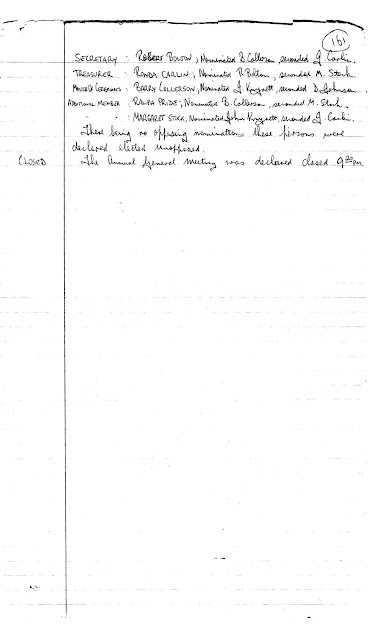 161
SECRETARY : Robert BOLTON, Nominated B. Collerson, seconded J. Carlin.
TREASURER : RONDA CARLIN, Nominated R. Bolton, seconded M. Stock
MASTER OF CEREMONIES : BARRY COLLERSON, Nominated J. Knynett, seconded D. Johnson
ADDITIONAL MEMBER : RALPH PRIDE, Nominated B. Collerson, seconded M. Stock.
" " : MARGARET STOCK, Nominated John Knynett, seconded J. Carlin.
There being no opposing nominations these persons were
declared elected unopposed.
CLOSED The Annual General Meeting was declared closed 9.30pm